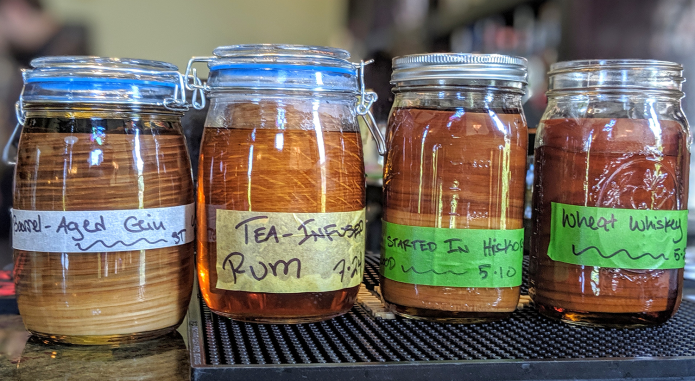 Barrel-Aged Gin
ST
TEA-INFUSED
RUM 7-24
STARTED IN Hickory
5-10
Wheat Whiskey